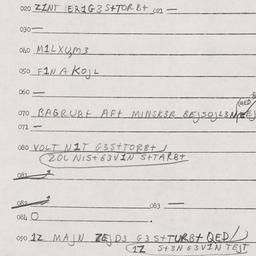 020 Z1NT ER1G3 S+TORB+ 021 —
030 —
060 M1LXUM3
050 F1NA KOJL
060 —
070 BAGRUB+ AF+ MINSK3R BEJSOJL3N
071 —
080 VOLT N1T G3S+TORB+
ZOL NIS+ 63V1N S+TARB+
081
082
083 —
084 O
090 1Z MAJN ZEJD3 G3S+TURB+ QED
1Z S+3N G3V1N TEJT